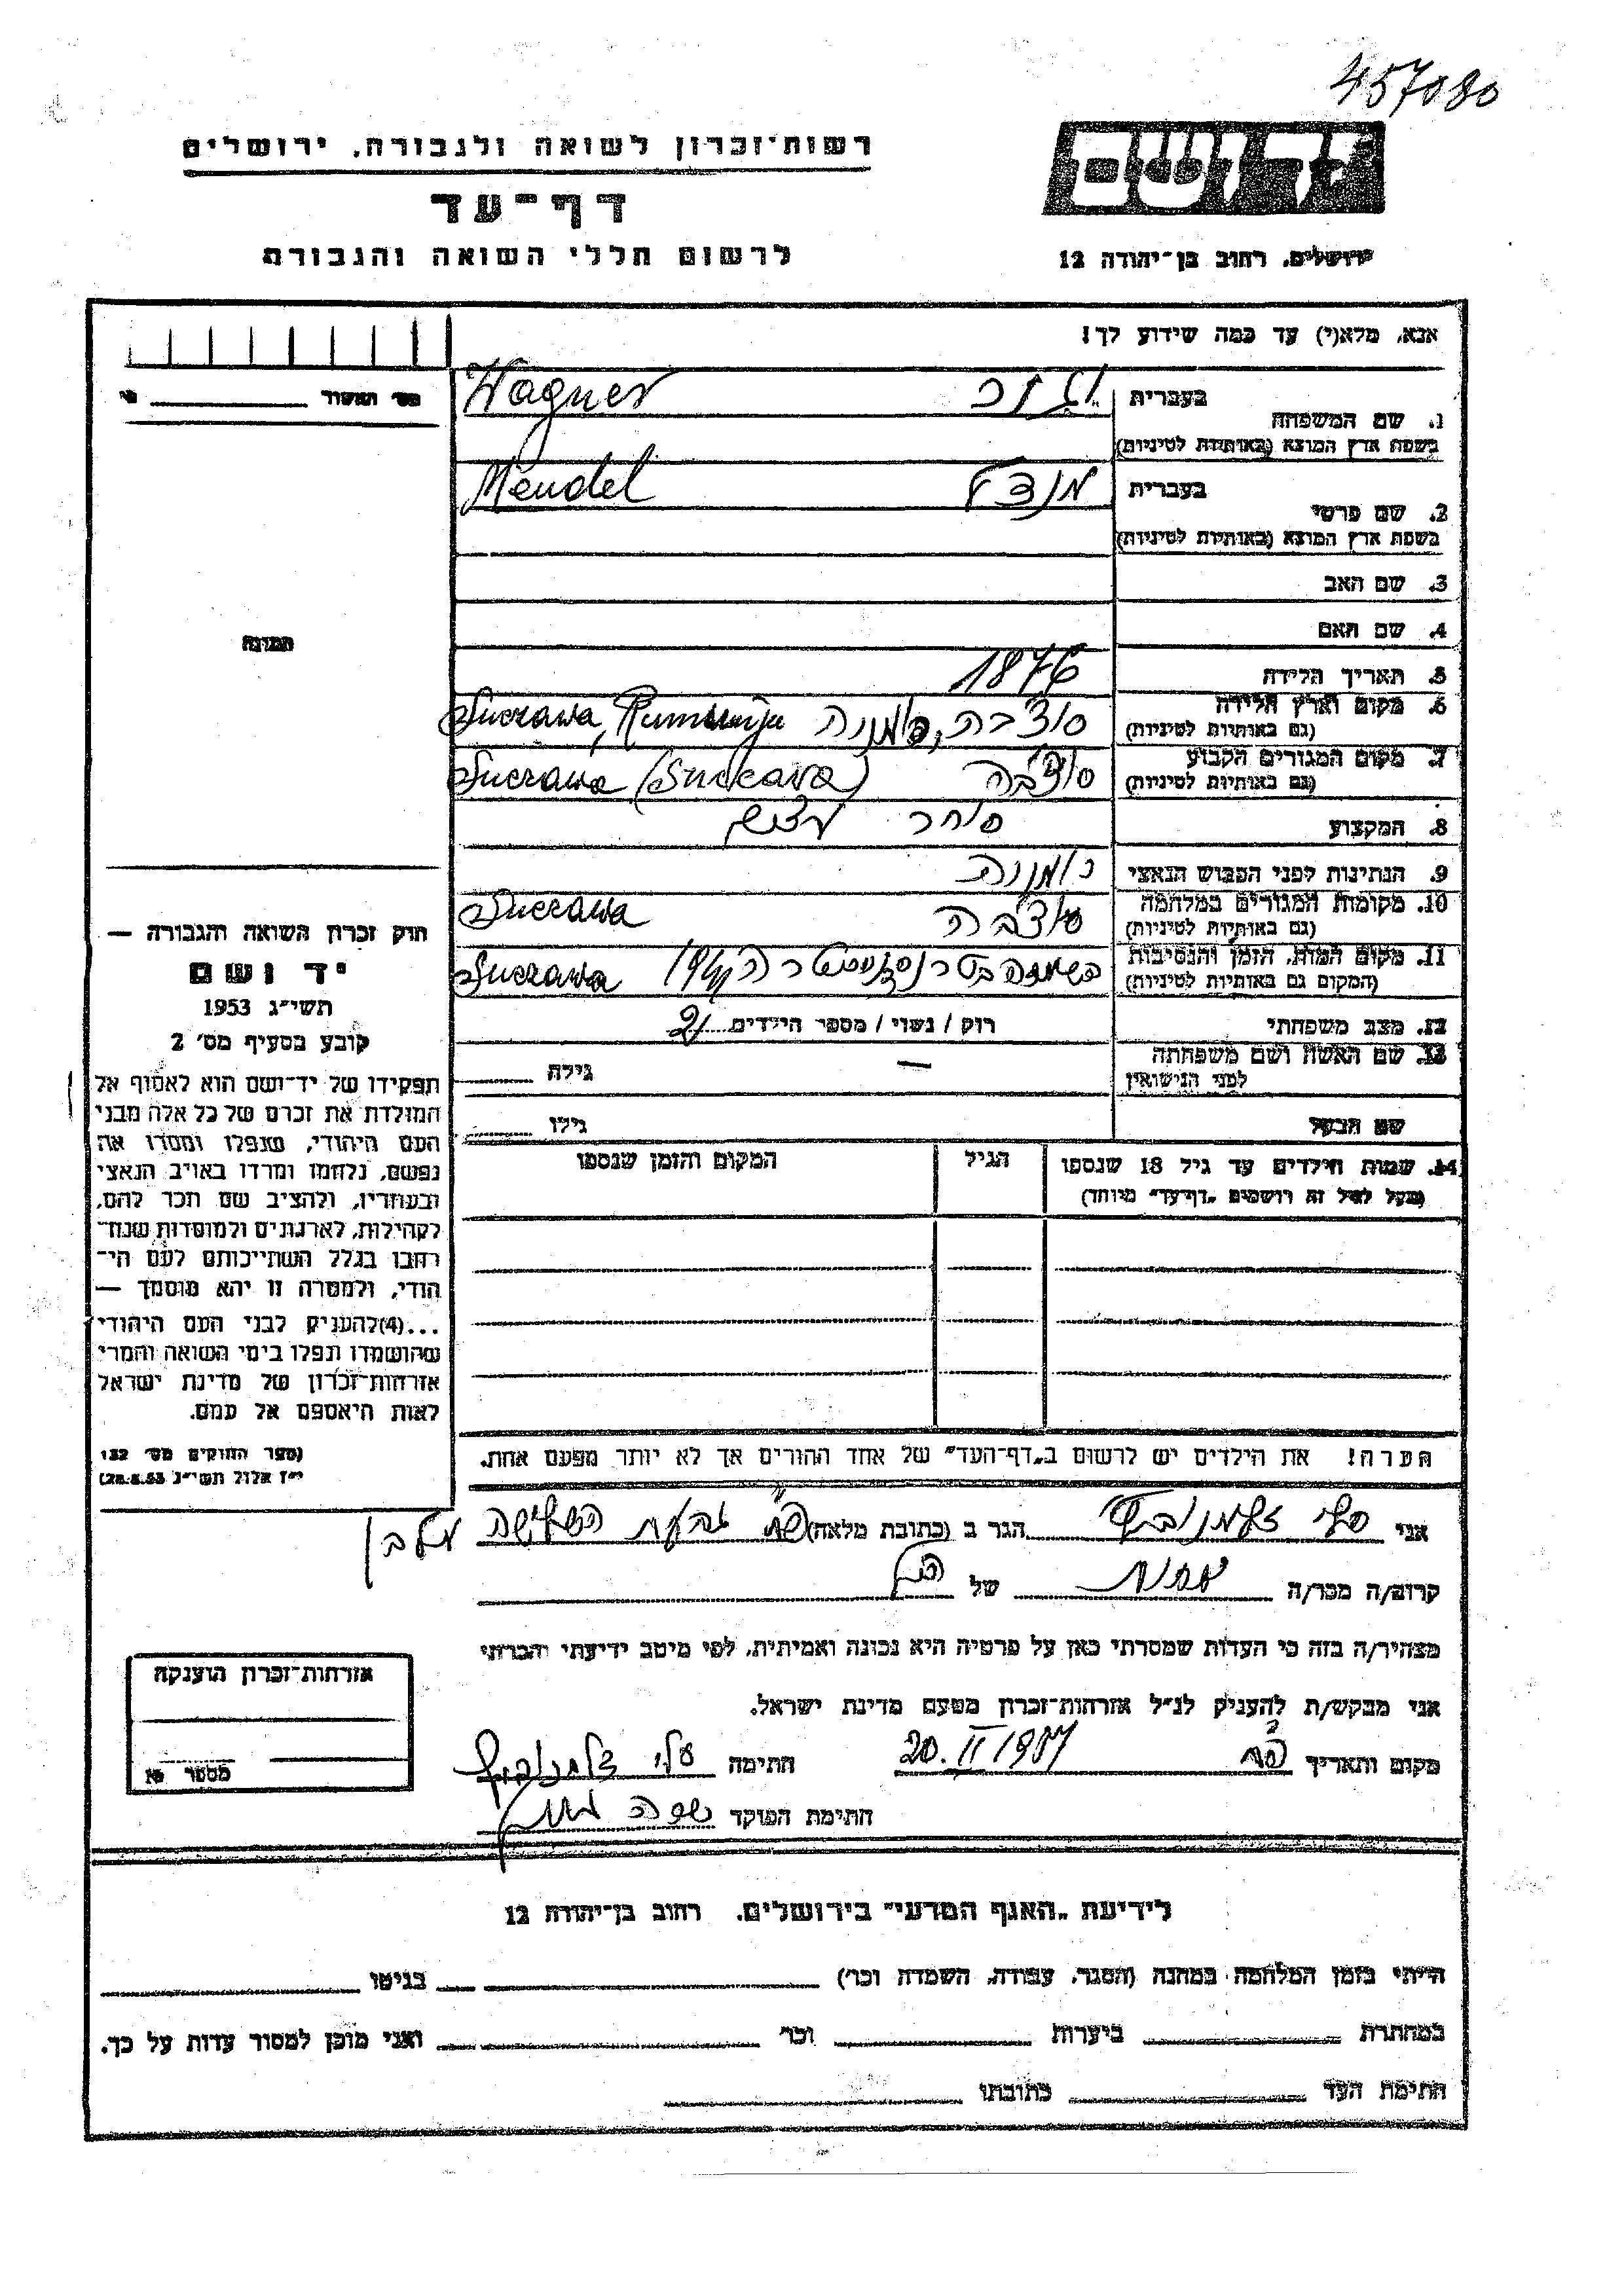 457080
רשות־זכרון לשואה ולגבורה, ירושלים
דף־עד
לרשום חללי השואה והגבורה
ירושלים, רחוב בן־יהודה 12
אנא, מלא(י) עד כמה שידוע לך!
1. שם המשפחה
בעברית
Wagner
בשפת ארץ המוצא (באותיות לטיניות)
2. שם פרטי
בעברית מנדל Mendel
בשפת ארץ המוצא (באותיות לטיניות)
3. שם האב
4. שם האם
5. תאריך הלידה 1876
6. מקום וארץ הלידה
(גם באותיות לטיניות)
סוצ'בה, רומניה
7. מקום המגורים הקבוע
(גם באותיות לטיניות)
סוצ'בה Suczawa (Suceava)
8. המקצוע סוחר
9. הנתינות לפני הכבוש הנאצי רומניה
10. מקומות המגורים במלחמה
(גם באותיות לטיניות)
סוצ'בה Suczawa
11. מקום המות, הזמן והנסיבות
(המקום גם באותיות לטיניות)
Suczawa
12. מצב משפחתי רוק / נשוי / מספר הילדים 2
13. שם האשה ושם משפחתה
לפני הנישואין
— גילה
שם הבעל גילו
14. שמות הילדים עד גיל 18 שנספו
(מעל לגיל זה רושמים "דף־עד" מיוחד)
הגיל
המקום והזמן שנספו
הערה! את הילדים יש לרשום ב"דף־העד" של אחד ההורים אך לא יותר מפעם אחת.
מס' האשור
תמונה
חוק זכרון השואה והגבורה —
יד ושם
תשי"ג 1953
קובע בסעיף מס' 2
תפקידו של יד־ושם הוא לאסוף אל
המולדת את זכרם של כל אלה מבני
העם היהודי, שנפלו ומסרו את
נפשם, נלחמו ומרדו באויב הנאצי
ובעוזריו, ולהציב שם וזכר להם,
לקהילות, לארגונים ולמוסדות שנח־
רבו בגלל השתייכותם לעם הי־
הודי, ולמטרה זו יהא מוסמך —
...(4)להעניק לבני העם היהודי
שהושמדו ונפלו בימי השואה והמרי
אזרחות־זכרון של מדינת ישראל
לאות היאספם אל עמם.
(ספר החוקים מס' 132
י"ז אלול תשי"ג 28.8.53)
אני הגר ב (כתובת מלאה)
קרוב/ה מכר/ה של
מצהיר/ה בזה כי העדות שמסרתי כאן על פרטיה היא נכונה ואמיתית, לפי מיטב ידיעתי והכרתי
אני מבקש/ת להעניק לנ"ל אזרחות־זכרון מטעם מדינת ישראל.
מקום ותאריך 20. II 1957 חתימה
חתימת הפוקד
אזרחות־זכרון הוענקה
מספר
לידיעת "האגף המדעי" בירושלים, רחוב בן־יהודה 12
הייתי בזמן המלחמה במחנה (הסגר, עבודה, השמדה וכו') בגיטו
במחתרת ביערות וכו' ואני מוכן למסור עדות על כך.
חתימת העד כתובתו